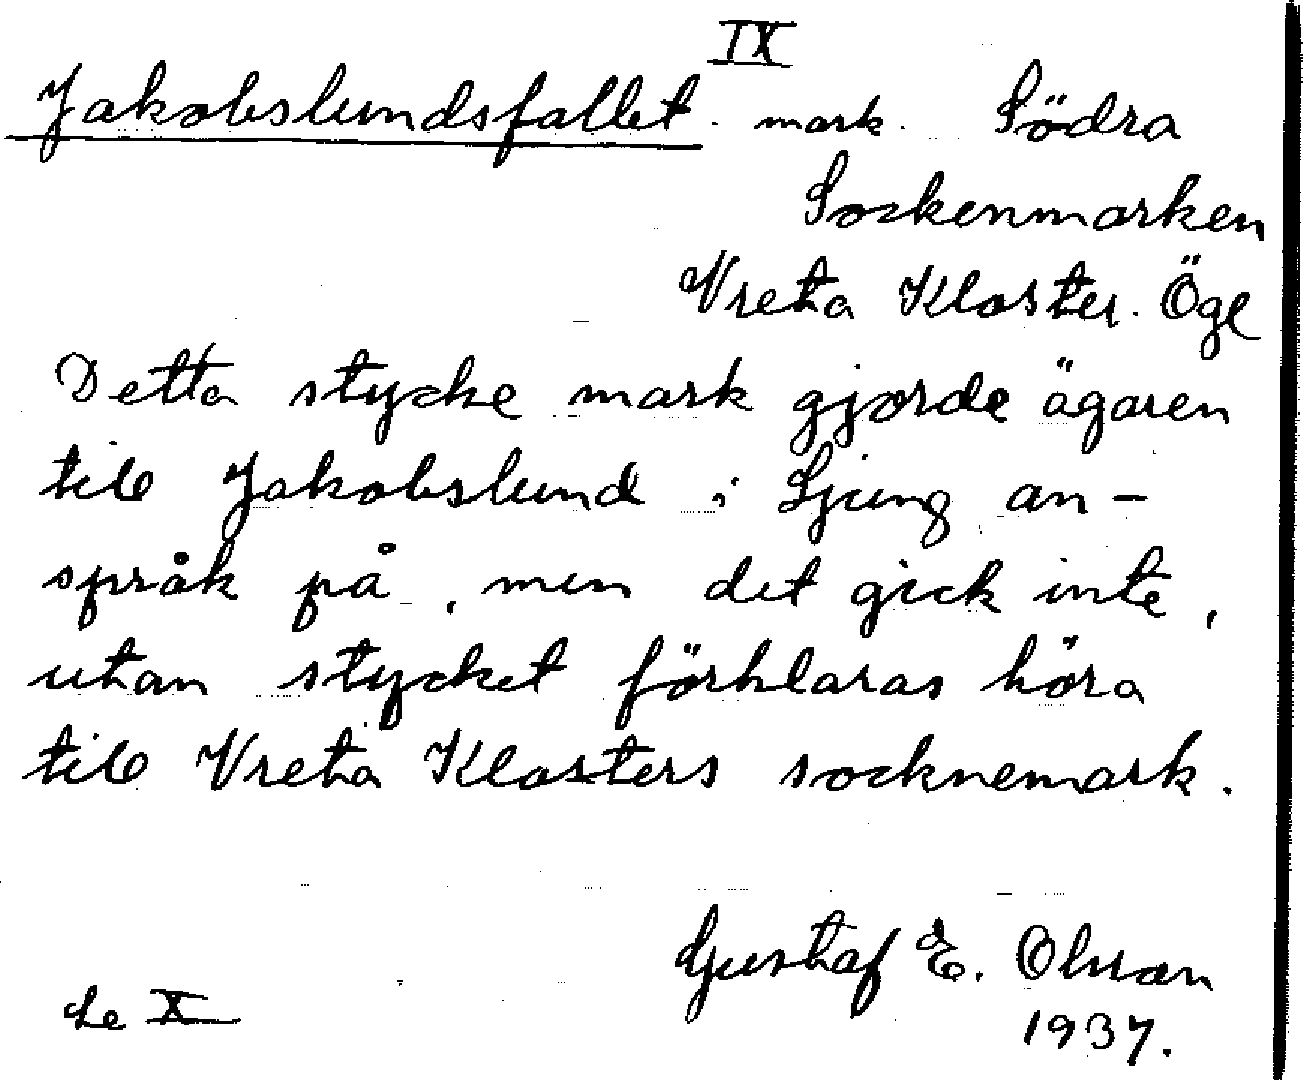 IX
Jakobslundsfallet. mark. Södra
Sockenmarken
Vreta Kloster. Ögl
Detta stycke mark gjorde ägaren
till Jakobslund i Ljung an-
språk på, men det gick inte,
utan stycket förklaras höra
till Vreta Klosters socknemark.
Gustaf E. Olsson
Le X
1937.